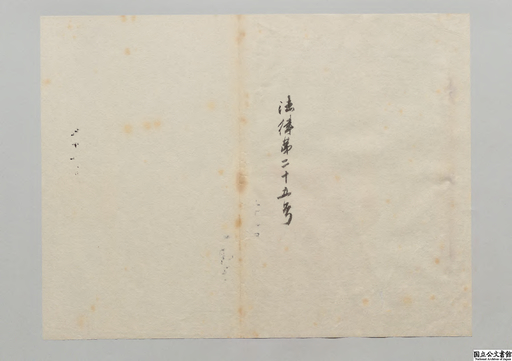 法律第二十五号
国立公文書館
National Archives of Japan